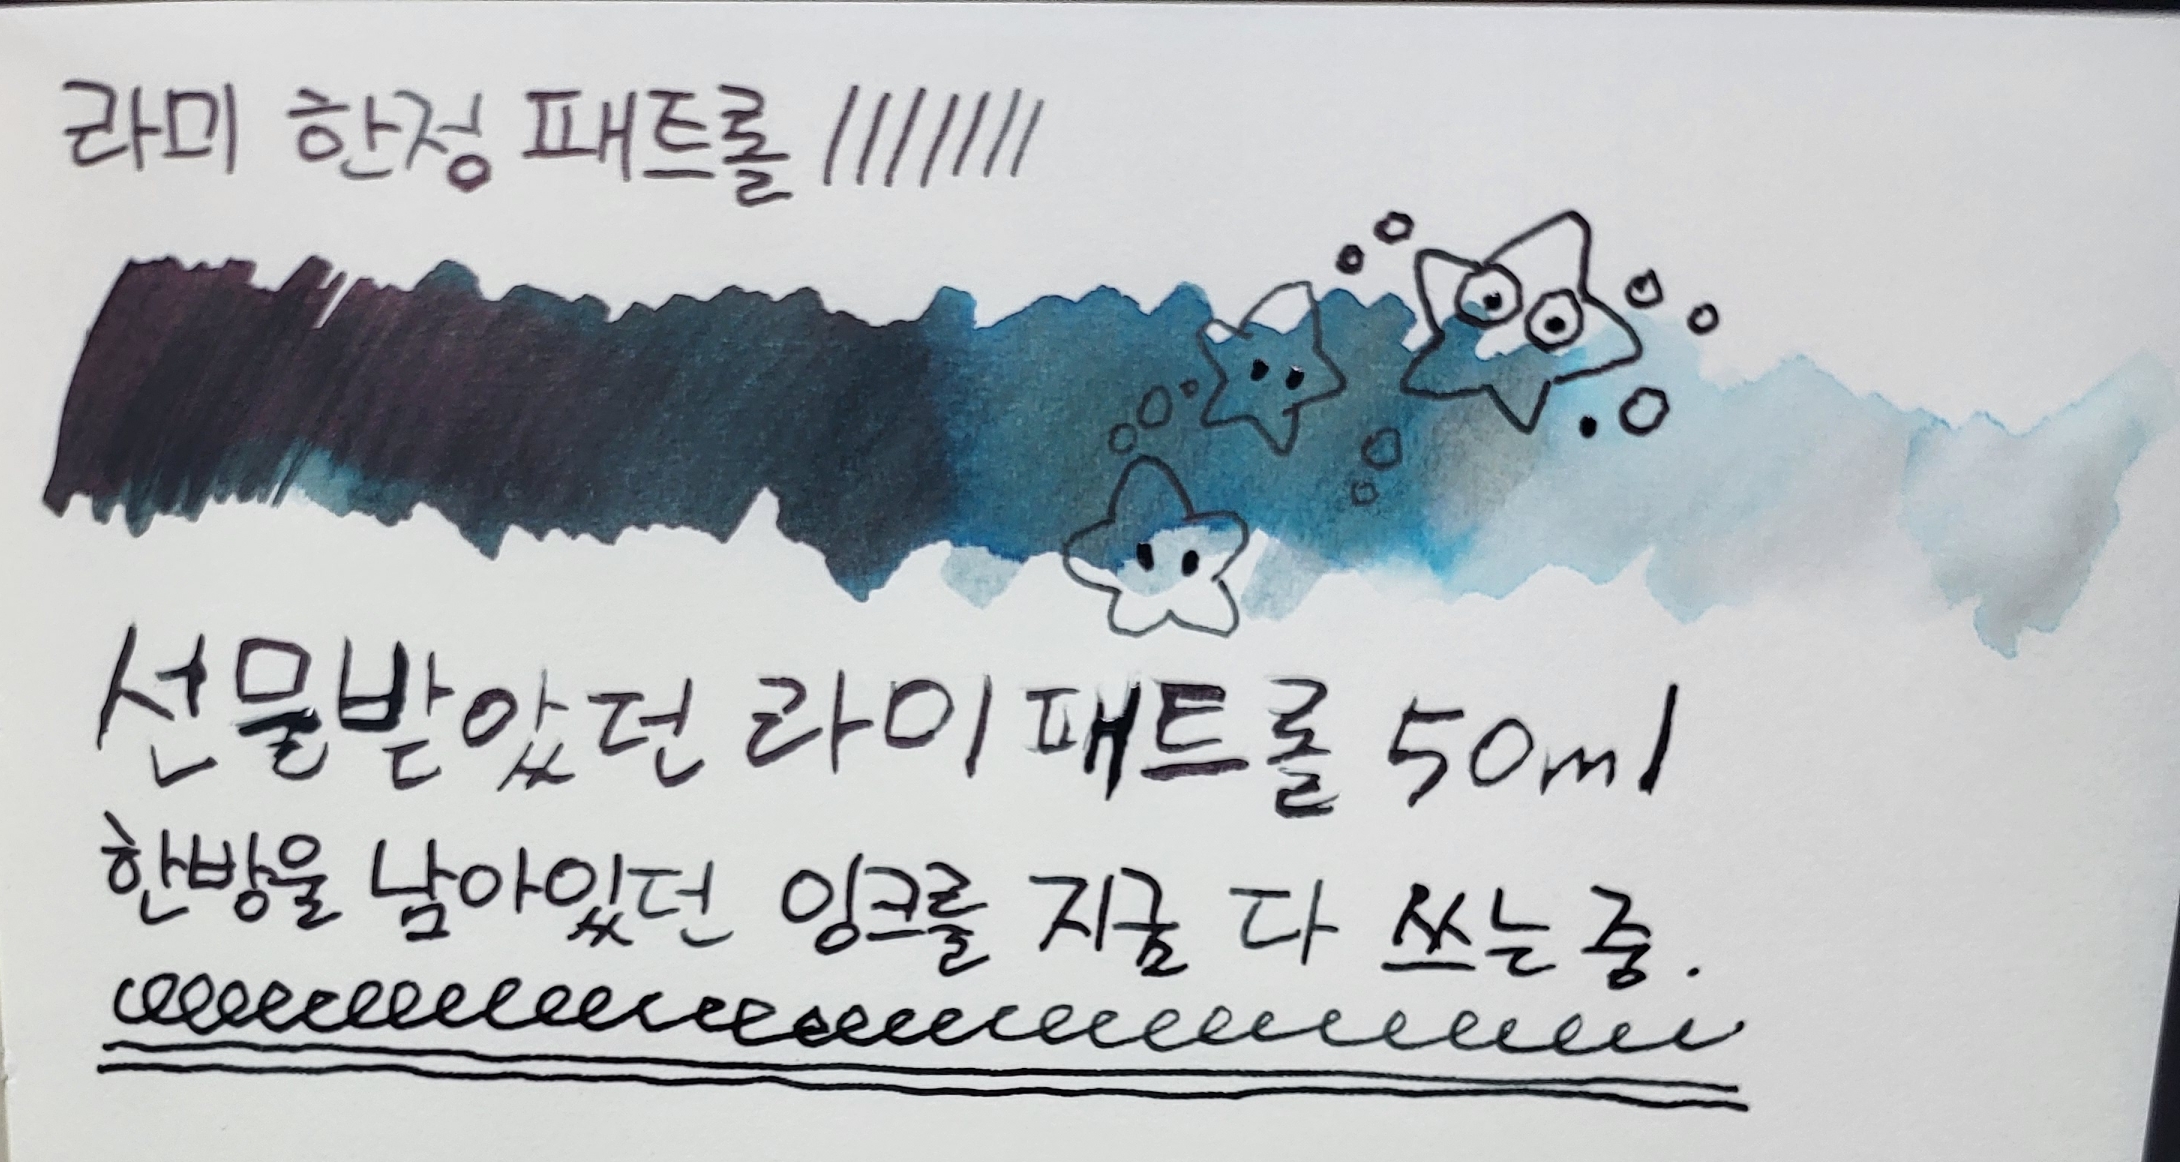 라미 한정 패트롤 ///////
선물받았던 라미 패트롤 50ml
한방울 남아있던 잉크를 지금 다 쓰는 중.